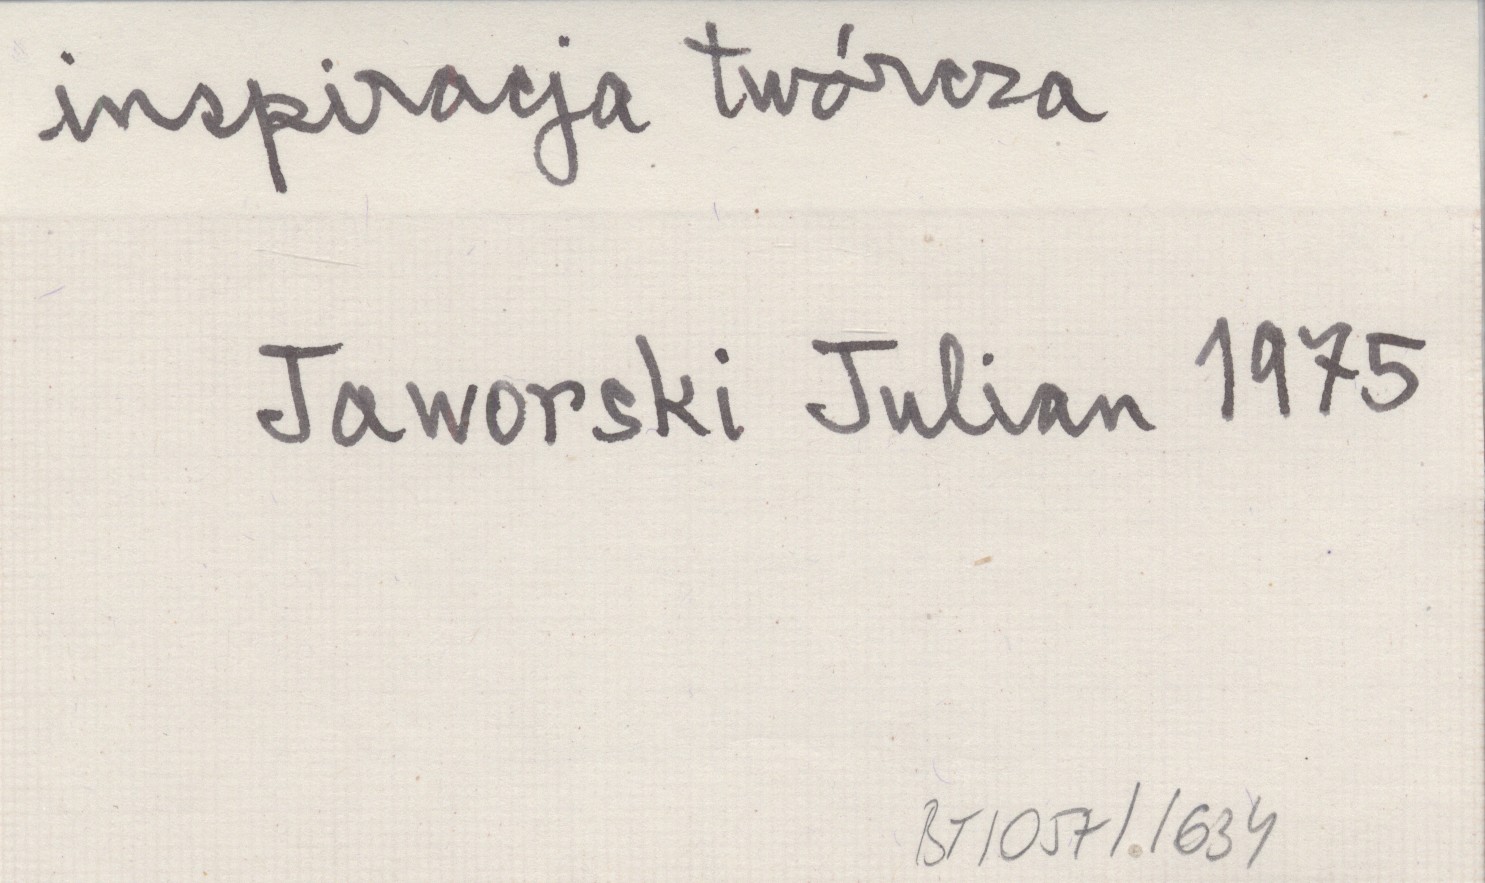 inspiracja twórcza
Jaworski Julian 1975
BT/057/1/634